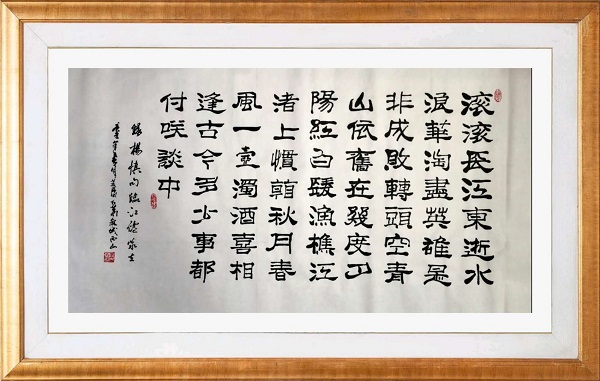 滚滚長江東逝水
浪華淘盡英雄是
非成敗轉頭空青
山依舊在幾度夕
陽紅白髮漁樵江
渚上慣看秋月春
風一壺濁酒喜相
逢古今多少事都
付咲談中
錄楊慎句臨江